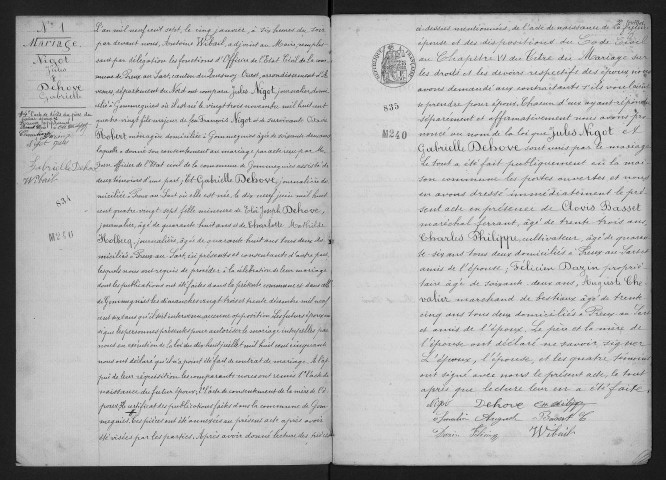 N° 1
Mariage
Nigot
Jules
&
Dehove
Gabrielle
Gabrielle Dehove
Wibail
834
M240
L'an mil neuf cent sept, le cinq janvier, à six heures du soir
par devant nous, Antoine Wibail, adjoint au Maire, remplis-
sant par délégation les fonctions d'Officier de l'Etat Civil de la com-
mune de Preux au Sart, canton du Quesnoy Ouest, arrondissement d'A-
vesnes, département du Nord ont comparu Jules Nigot, journalier, domici-
lié à Gommegnies où il est né, le vingt trois novembre mil huit cent
quatre vingt fils majeur de feu François Nigot et de survivante
Robert ménagère domiciliée à Gommegnies âgée de soixante deux ans
laquelle a donné son consentement au mariage par acte reçu par M.
l'un officier de l'Etat civil de la commune de Gommegnies assisté de
deux témoins d'une part; Et Gabrielle Dehove, journalière do-
miciliée à Preux au Sart où elle est née, le neuf juin mil huit
cent quatre vingt sept fille mineure de Joseph Dehove,
journalier, âgé de quarante huit ans et de Charlotte Mathilde
Holbecq, journalière, âgée de quarante huit ans tous deux do-
miciliés à Preux au Sart, ici présents et consentants d'autre part,
lesquels nous ont requis de procéder à la célébration de leur mariage
dont les publications ont été faites dans la présente commune et dans celle
de Gommegnies les dimanches vingt trois et trente décembre mil neuf
cent six sans qu'il soit intervenu aucune opposition. Les futurs époux ain-
si que les personnes présentes pour autoriser le mariage interpellés par
nous en exécution de la loi du dix huit juillet mil huit cent cinquante
nous ont déclaré qu'il n'a point été fait de contrat de mariage. A l'ap-
pui de leur réquisition les comparants nous ont remis 1° l'acte de
naissance du futur époux, l'acte de consentement de la mère de l'é-
poux, le certificat des publications faites dans la commune de Gom-
megnies. Ces pièces ont été annexées au présent acte après avoir
été visées par les parties. Après avoir donné lecture des pièces
835
M240
ci dessus mentionnées, de l'acte de naissance de la future
épouse et des dispositions du Code Civil
au Chapitre VI du Titre du Mariage sur
les droits et les devoirs respectifs des époux, nous
avons demandé aux contractants s'ils voulaient
se prendre pour époux. Chacun d'eux ayant répondu
séparément et affirmativement nous avons pro-
noncé au nom de la loi que Jules Nigot et
Gabrielle Dehove sont unis par le mariage
le tout a été fait publiquement en la mai-
son commune les portes ouvertes et nous
en avons dressé immédiatement le présent
acte en présence de Clovis Basset
maréchal ferrant, âgé de trente trois ans,
Charles Philippe, cultivateur, âgé de quaran-
te six ans tous deux domiciliés à Preux au Sart et
amis de l'épouse; Félicien Dazin, proprié-
taire âgé de soixante deux ans, Auguste Che-
valier marchand de bestiaux âgé de trente
cinq ans tous deux domiciliés à Preux au Sart
et amis de l'époux. Le père et la mère de
l'épouse ont déclaré ne savoir signer.
L'époux, l'épouse, et les quatre témoins
ont signé avec nous le présent acte, le tout
après que lecture leur en a été faite.
Nigot Dehove
Basset C
Wibail